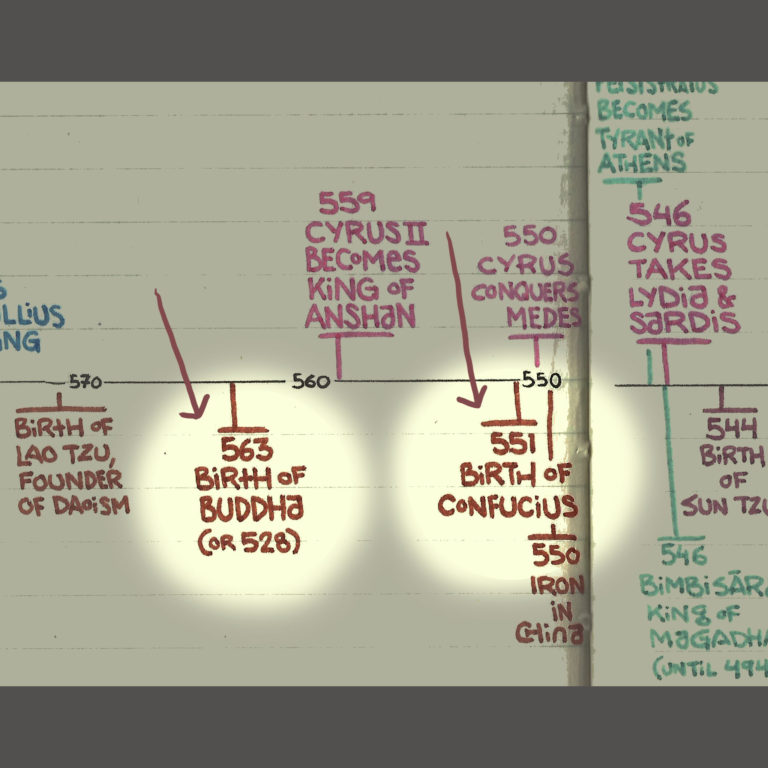 LLIUS
NG
570
BIRTH OF
LAO TZU,
FOUNDER
OF DAOISM
563
BIRTH OF
BUDDHA
(OR 528)
559
CYRUS II
BECOMES
KING OF
ANSHAN
560
550
CYRUS
CONQUERS
MEDES
550
551
BIRTH OF
CONFUCIUS
550
IRON
IN
CHINA
PEISISTRATUS
BECOMES
TYRANT OF
ATHENS
546
CYRUS
TAKES
LYDIA &
SARDIS
544
BIRTH
OF
SUN TZU
546
BIMBISĀRA
KING OF
MAGADHA
(UNTIL 494